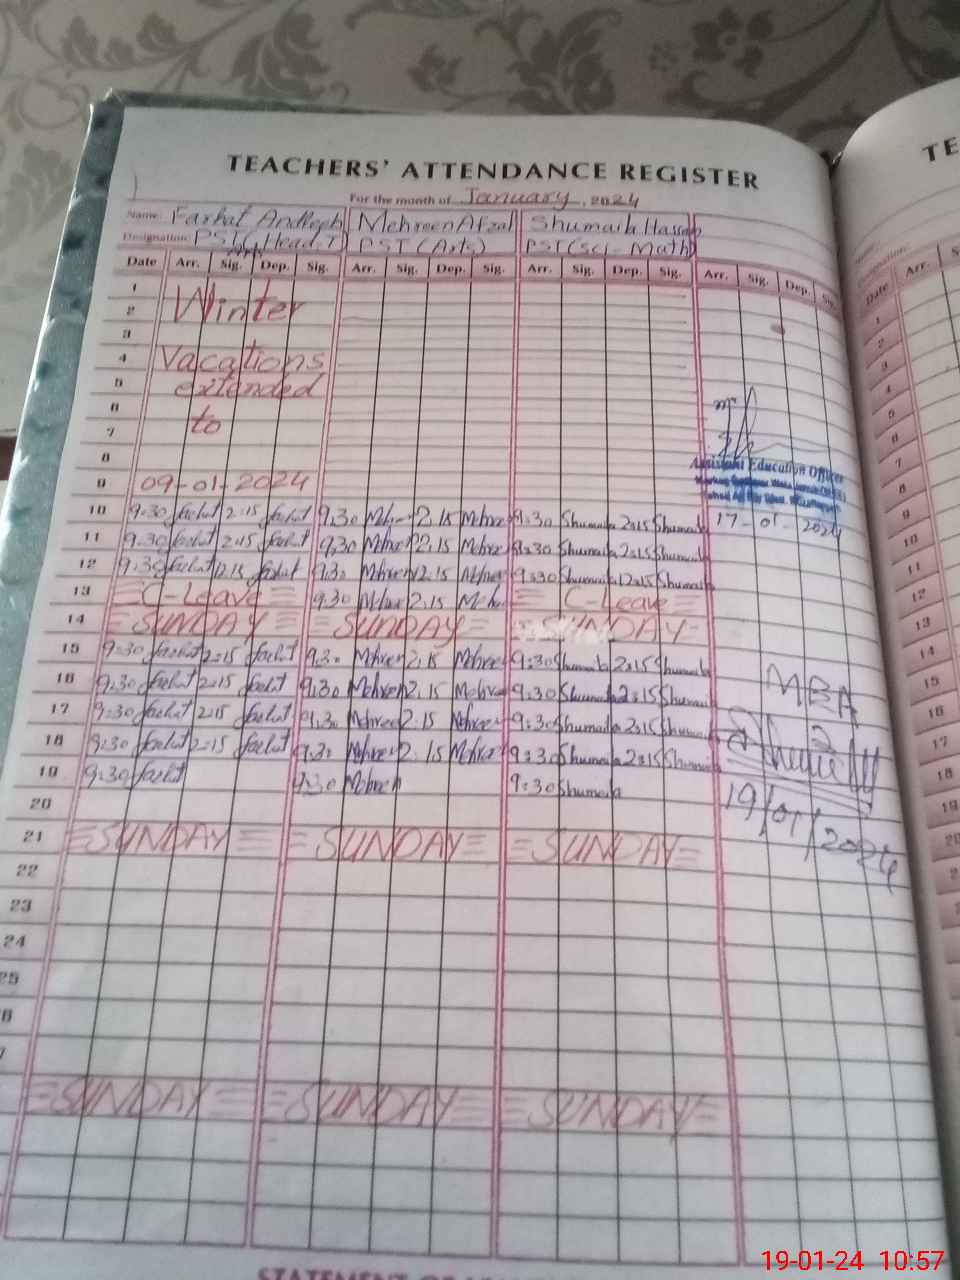 TEACHERS' ATTENDANCE REGISTER
TE
For the month of January, 2024
Name: Farhat Andleeb Mehreen Afzal Shumaila Hassan
Designation: PST (Head-T) PST (Arts) PST (Sci-Math)
Date Arr. Sig. Dep. Sig. Arr. Sig. Dep. Sig. Arr. Sig. Dep. Sig. Arr. Sig. Dep. Sig.
Date Arr.
1
2 Winter
3
4 Vacations
5 extended
6
7 to
8
Assistant Education Officer
9 09-01-2024
17-01-2024
10 9:30 Farhat 2:15 Farhat 9:30 Mehreen 2:15 Mehreen 9:30 Shumaila 2:15 Shumaila
11 9:30 Farhat 2:15 Farhat 9:30 Mehreen 2:15 Mehreen 9:30 Shumaila 2:15 Shumaila
12 9:30 Farhat 12:15 Farhat 9:30 Mehreen 12:15 Mehreen 9:30 Shumaila 12:15 Shumaila
13 C-Leave 9:30 Mehreen 2:15 C-Leave
14 SUNDAY SUNDAY SUNDAY
15 9:30 Farhat 2:15 Farhat 9:30 Mehreen 2:15 Mehreen 9:30 Shumaila 2:15 Shumaila
16 9:30 Farhat 2:15 Farhat 9:30 Mehreen 2:15 Mehreen 9:30 Shumaila 2:15 Shumaila
MBA
17 9:30 Farhat 2:15 Farhat 9:30 Mehreen 2:15 Mehreen 9:30 Shumaila 2:15 Shumaila
18 9:30 Farhat 2:15 Farhat 9:30 Mehreen 2:15 Mehreen 9:30 Shumaila 2:15 Shumaila
19 9:30 Farhat 9:30 Mehreen 9:30 Shumaila
19/01/2024
20
21 SUNDAY SUNDAY SUNDAY
22
23
24
25
SUNDAY SUNDAY SUNDAY
1
2
3
4
5
6
7
8
9
10
11
12
13
14
15
16
17
18
19
20
19-01-24 10:57